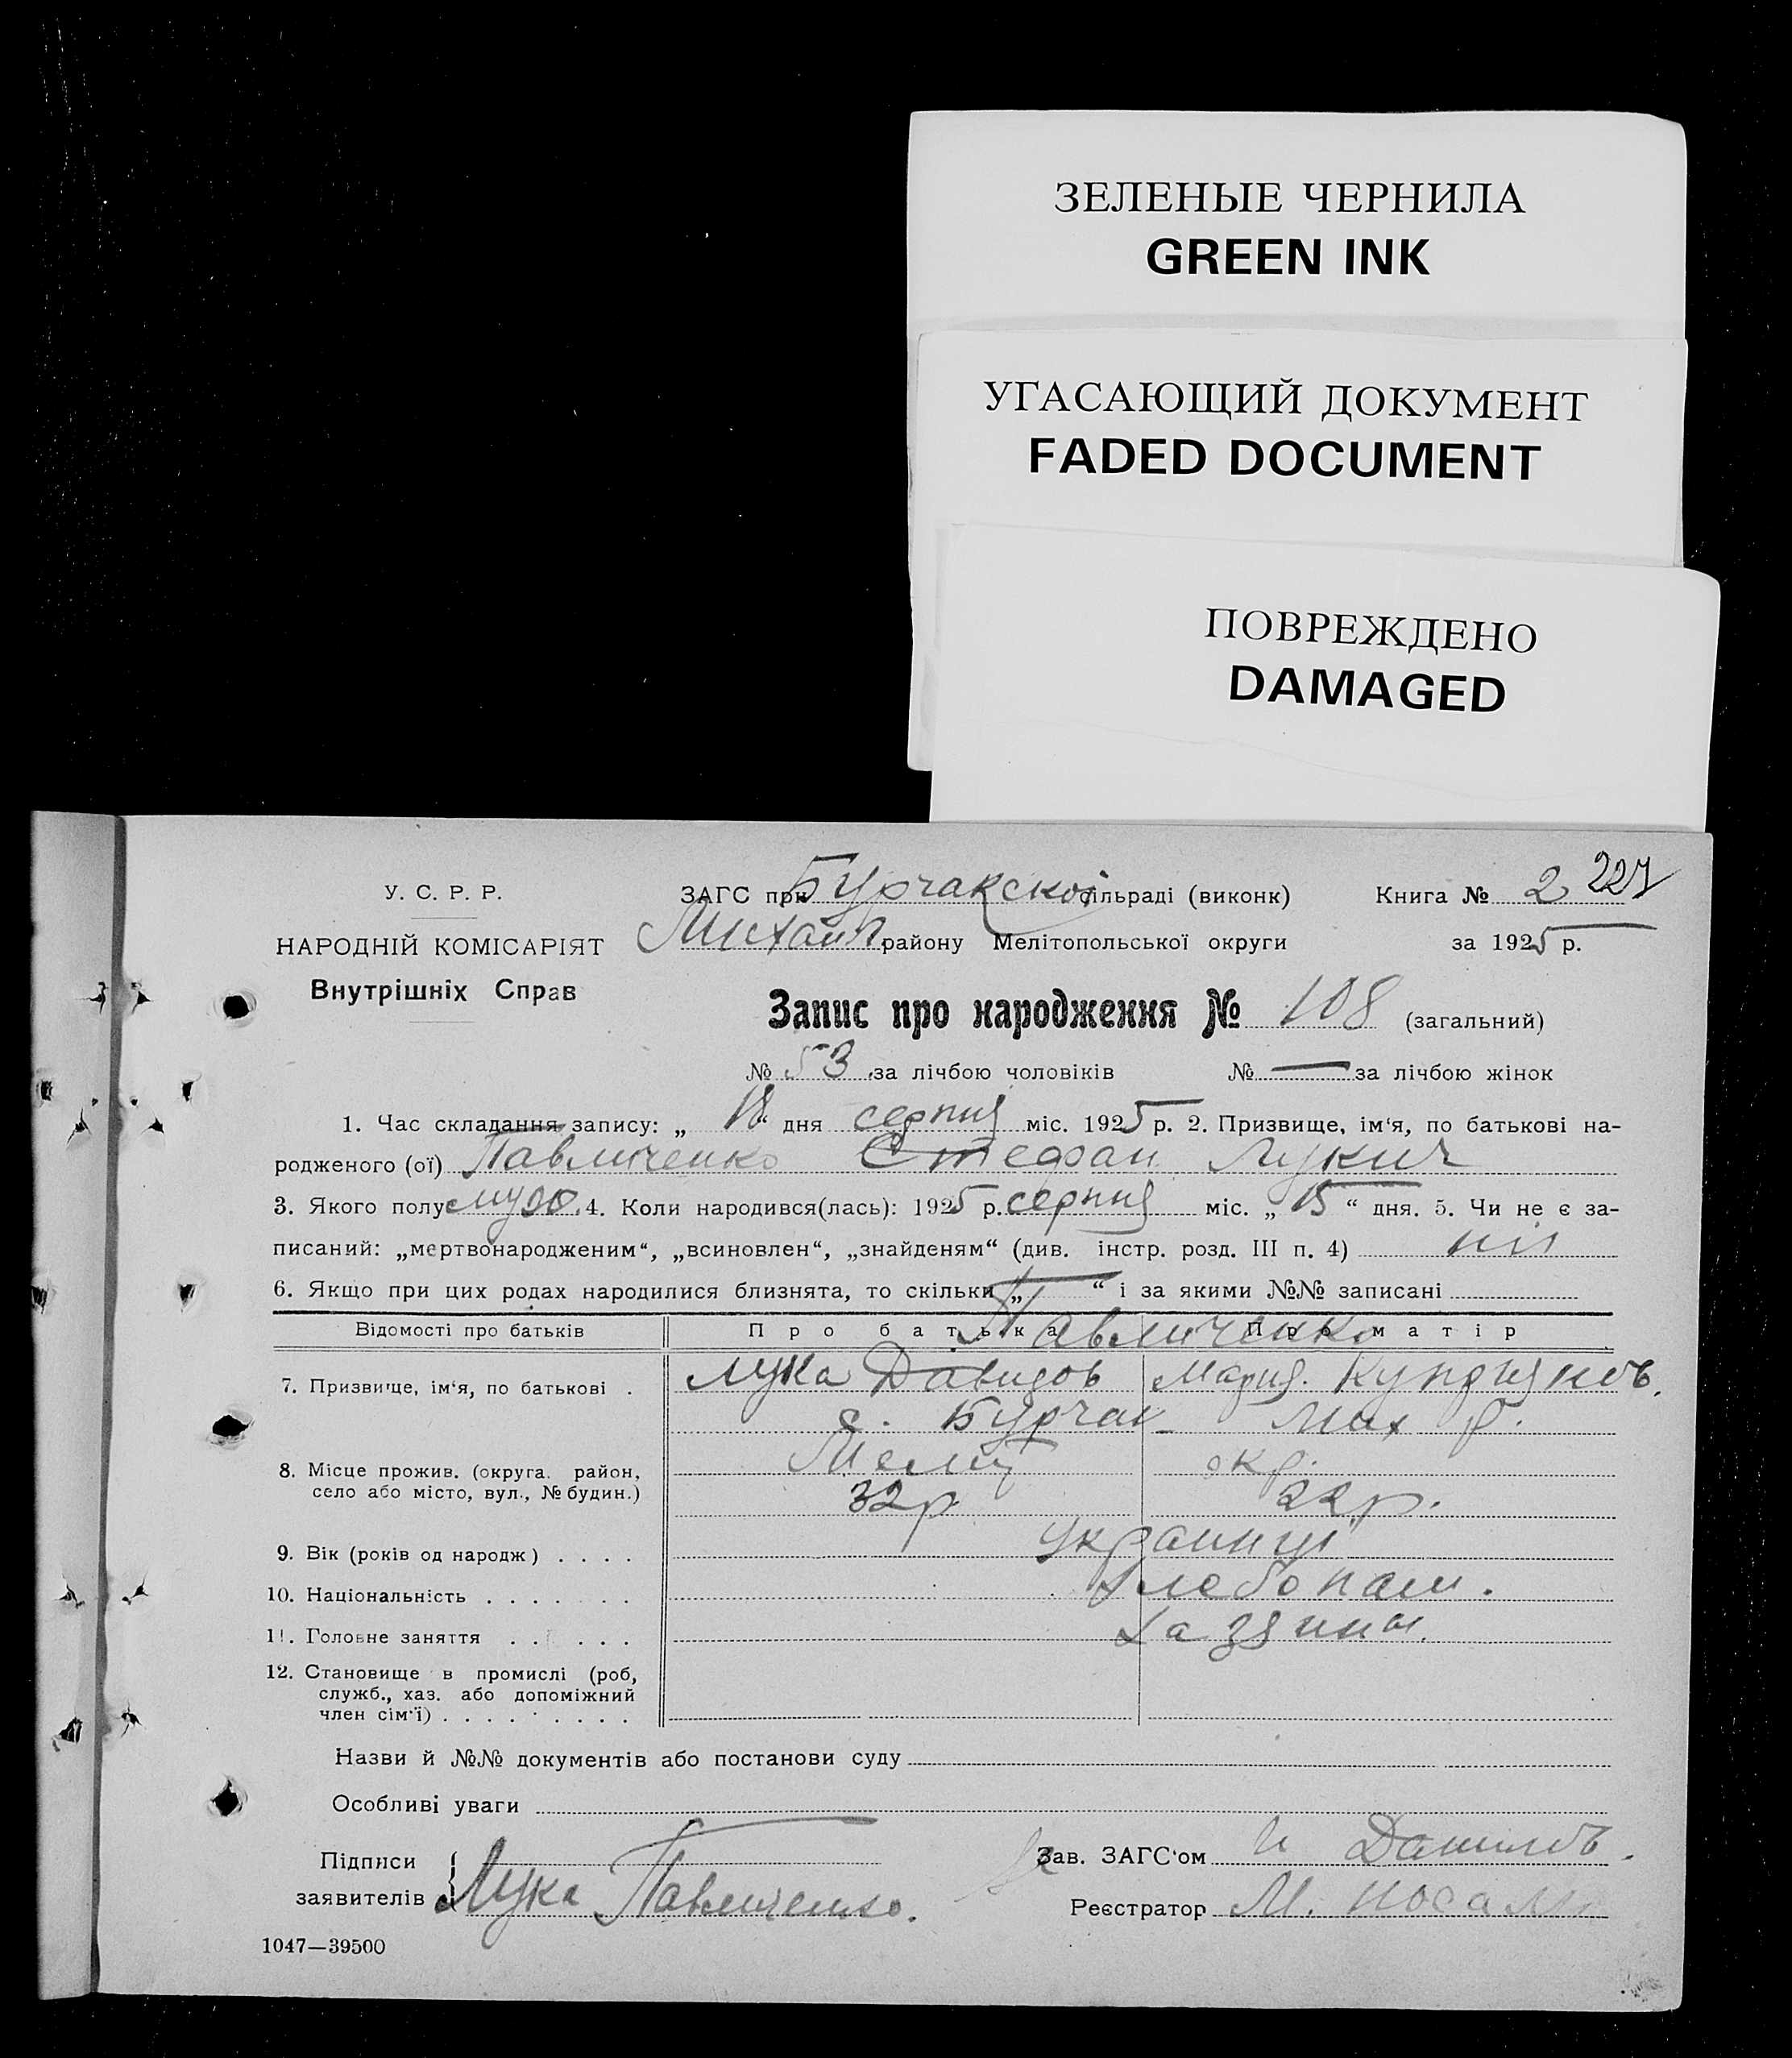 ЗЕЛЕНЫЕ ЧЕРНИЛА
GREEN INK
УГАСАЮЩИЙ ДОКУМЕНТ
FADED DOCUMENT
ПОВРЕЖДЕНО
DAMAGED
227
У. С. Р. Р.
НАРОДНІЙ КОМІСАРІЯТ
Внутрішніх Справ
ЗАГС при Бурчакской сільраді (виконк) Книга № 2
Михайл району Мелітопольської округи за 1925 р.
Запис про народження № 108 (загальний)
№ 53 за лічбою чоловіків № — за лічбою жінок
1. Час складання запису: „18“ дня серпня міс. 1925 р. 2. Призвище, ім‘я, по батькові на-
родженого (ої) Павличенко Стефан Лукич
3. Якого полу муж. 4. Коли народився(лась): 1925 р. серпня міс. „15“ дня. 5. Чи не є за-
писаний: „мертвонародженим“, „всиновлен“, „знайденям“ (див. інстр. розд. III п. 4) ні
6. Якщо при цих родах народилися близнята, то скільки „—“ і за якими №№ записані
Відомості про батьків Про батька Про матір
Павличенко
7. Призвище, ім‘я, по батькові . Лука Давидов Мария.
с. Бурчак Мих р.
8. Місце прожив. (округа. район, село або місто, вул., № будин.) Меліт окр.
32 р 22 р.
9. Вік (років од народж) . . . . украинці
10. Національність . . . . . . . хлебопаш.
11. Головне заняття . . . . . . хазяины.
12. Становище в промислі (роб, служб., хаз. або допоміжний член сім‘ї) . . . . . . . . .
Назви й №№ документів або постанови суду
Особливі уваги
Підписи заявителів Лука Павличенко.
Зав. ЗАГС‘ом
Реєстратор М.
1047—39500